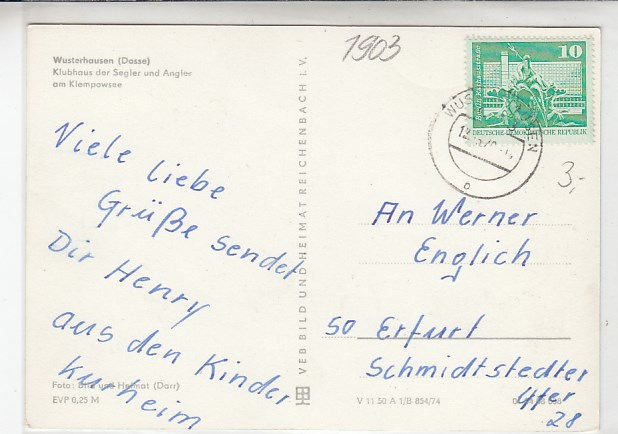 Wusterhausen (Dosse)
Klubhaus der Segler und Angler
am Klempowsee
1903
10
DEUTSCHE DEMOKRATISCHE REPUBLIK
3,-
Viele liebe
Grüße sendet
Dir Henry
aus den Kinder
kurheim
VEB BILD UND HEIMAT REICHENBACH I. V.
An Werner
Englich
50 Erfurt
Schmidtstedter
Ufer
28
Foto: Bild und Heimat (Darr)
EVP 0,25 M
V 11 50 A 1/B 854/74